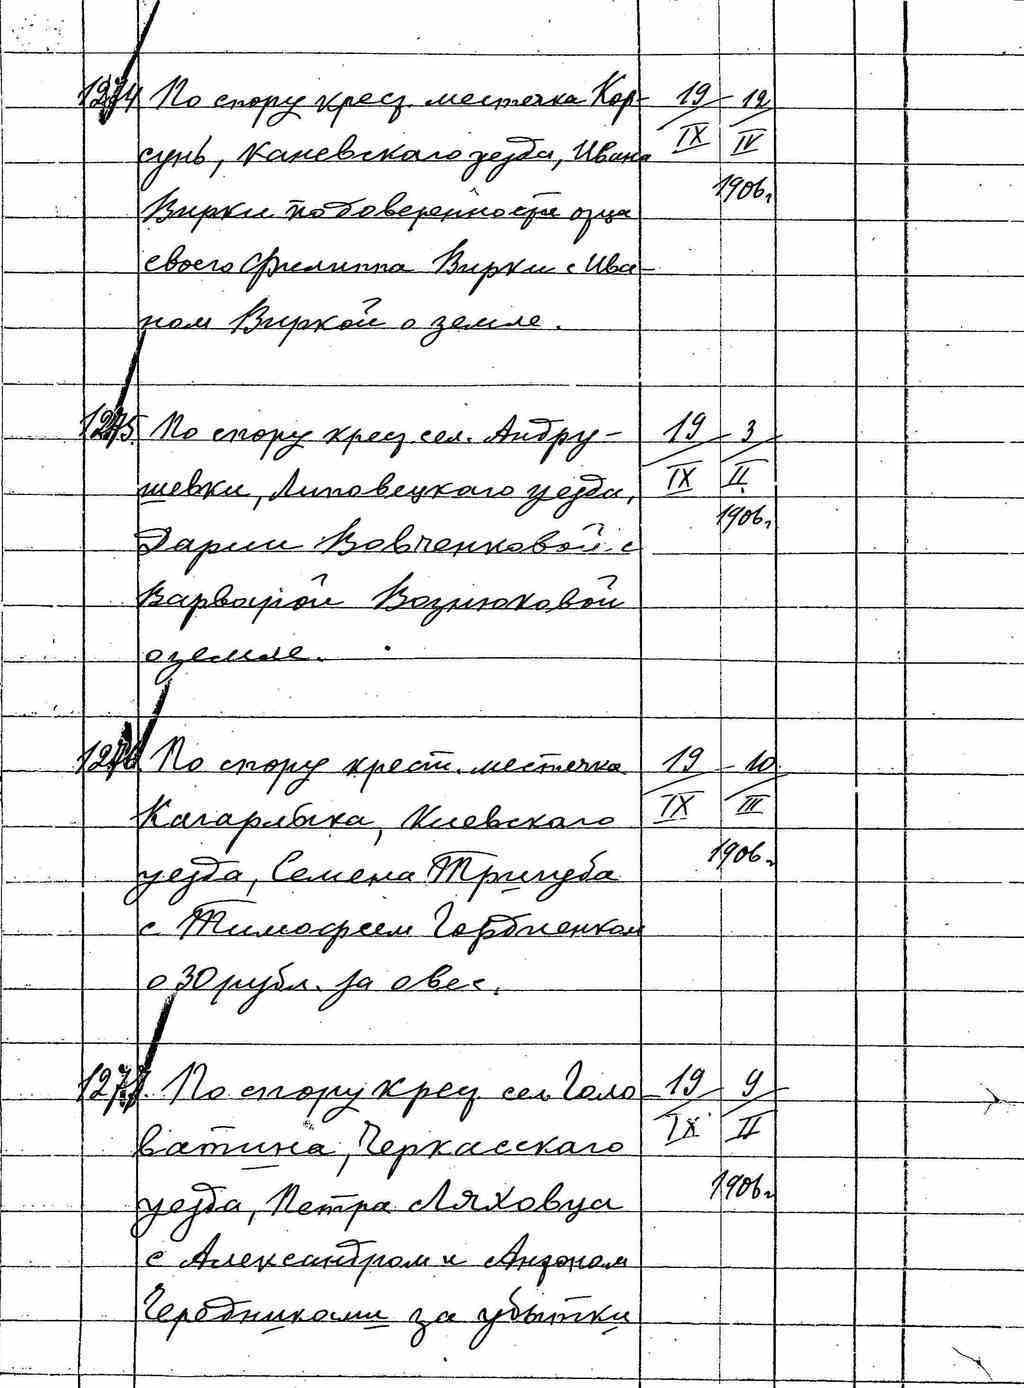 1274 По спору крест. местечка Кор- 19 12
сунь, Каневскаго уезда, Ивана IX IV
Вирки по доверенности отца 1906 г.
своего Филиппа Вирки с Ива-
ном Виркой о земле.
1275. По спору крест. сел. Андру- 19 3
шевки, Липовецкаго уезда, IX II
Дарии Вовченковой с 1906 г.
Варварой Вознюковой
о земле.
1276. По спору крест. местечка 19 10
Кагарлыка, Киевскаго IX III
уезда, Семена Тригуба 1906 г.
с Тимофеем Гордиенком
о 30 рубл. за овес.
1277. По спору крест. сел. Голо 19 9
вятина, Черкасскаго IX II
уезда, Петра Ляховца 1906 г.
с Александром и Антоном
Чередниками за убытки